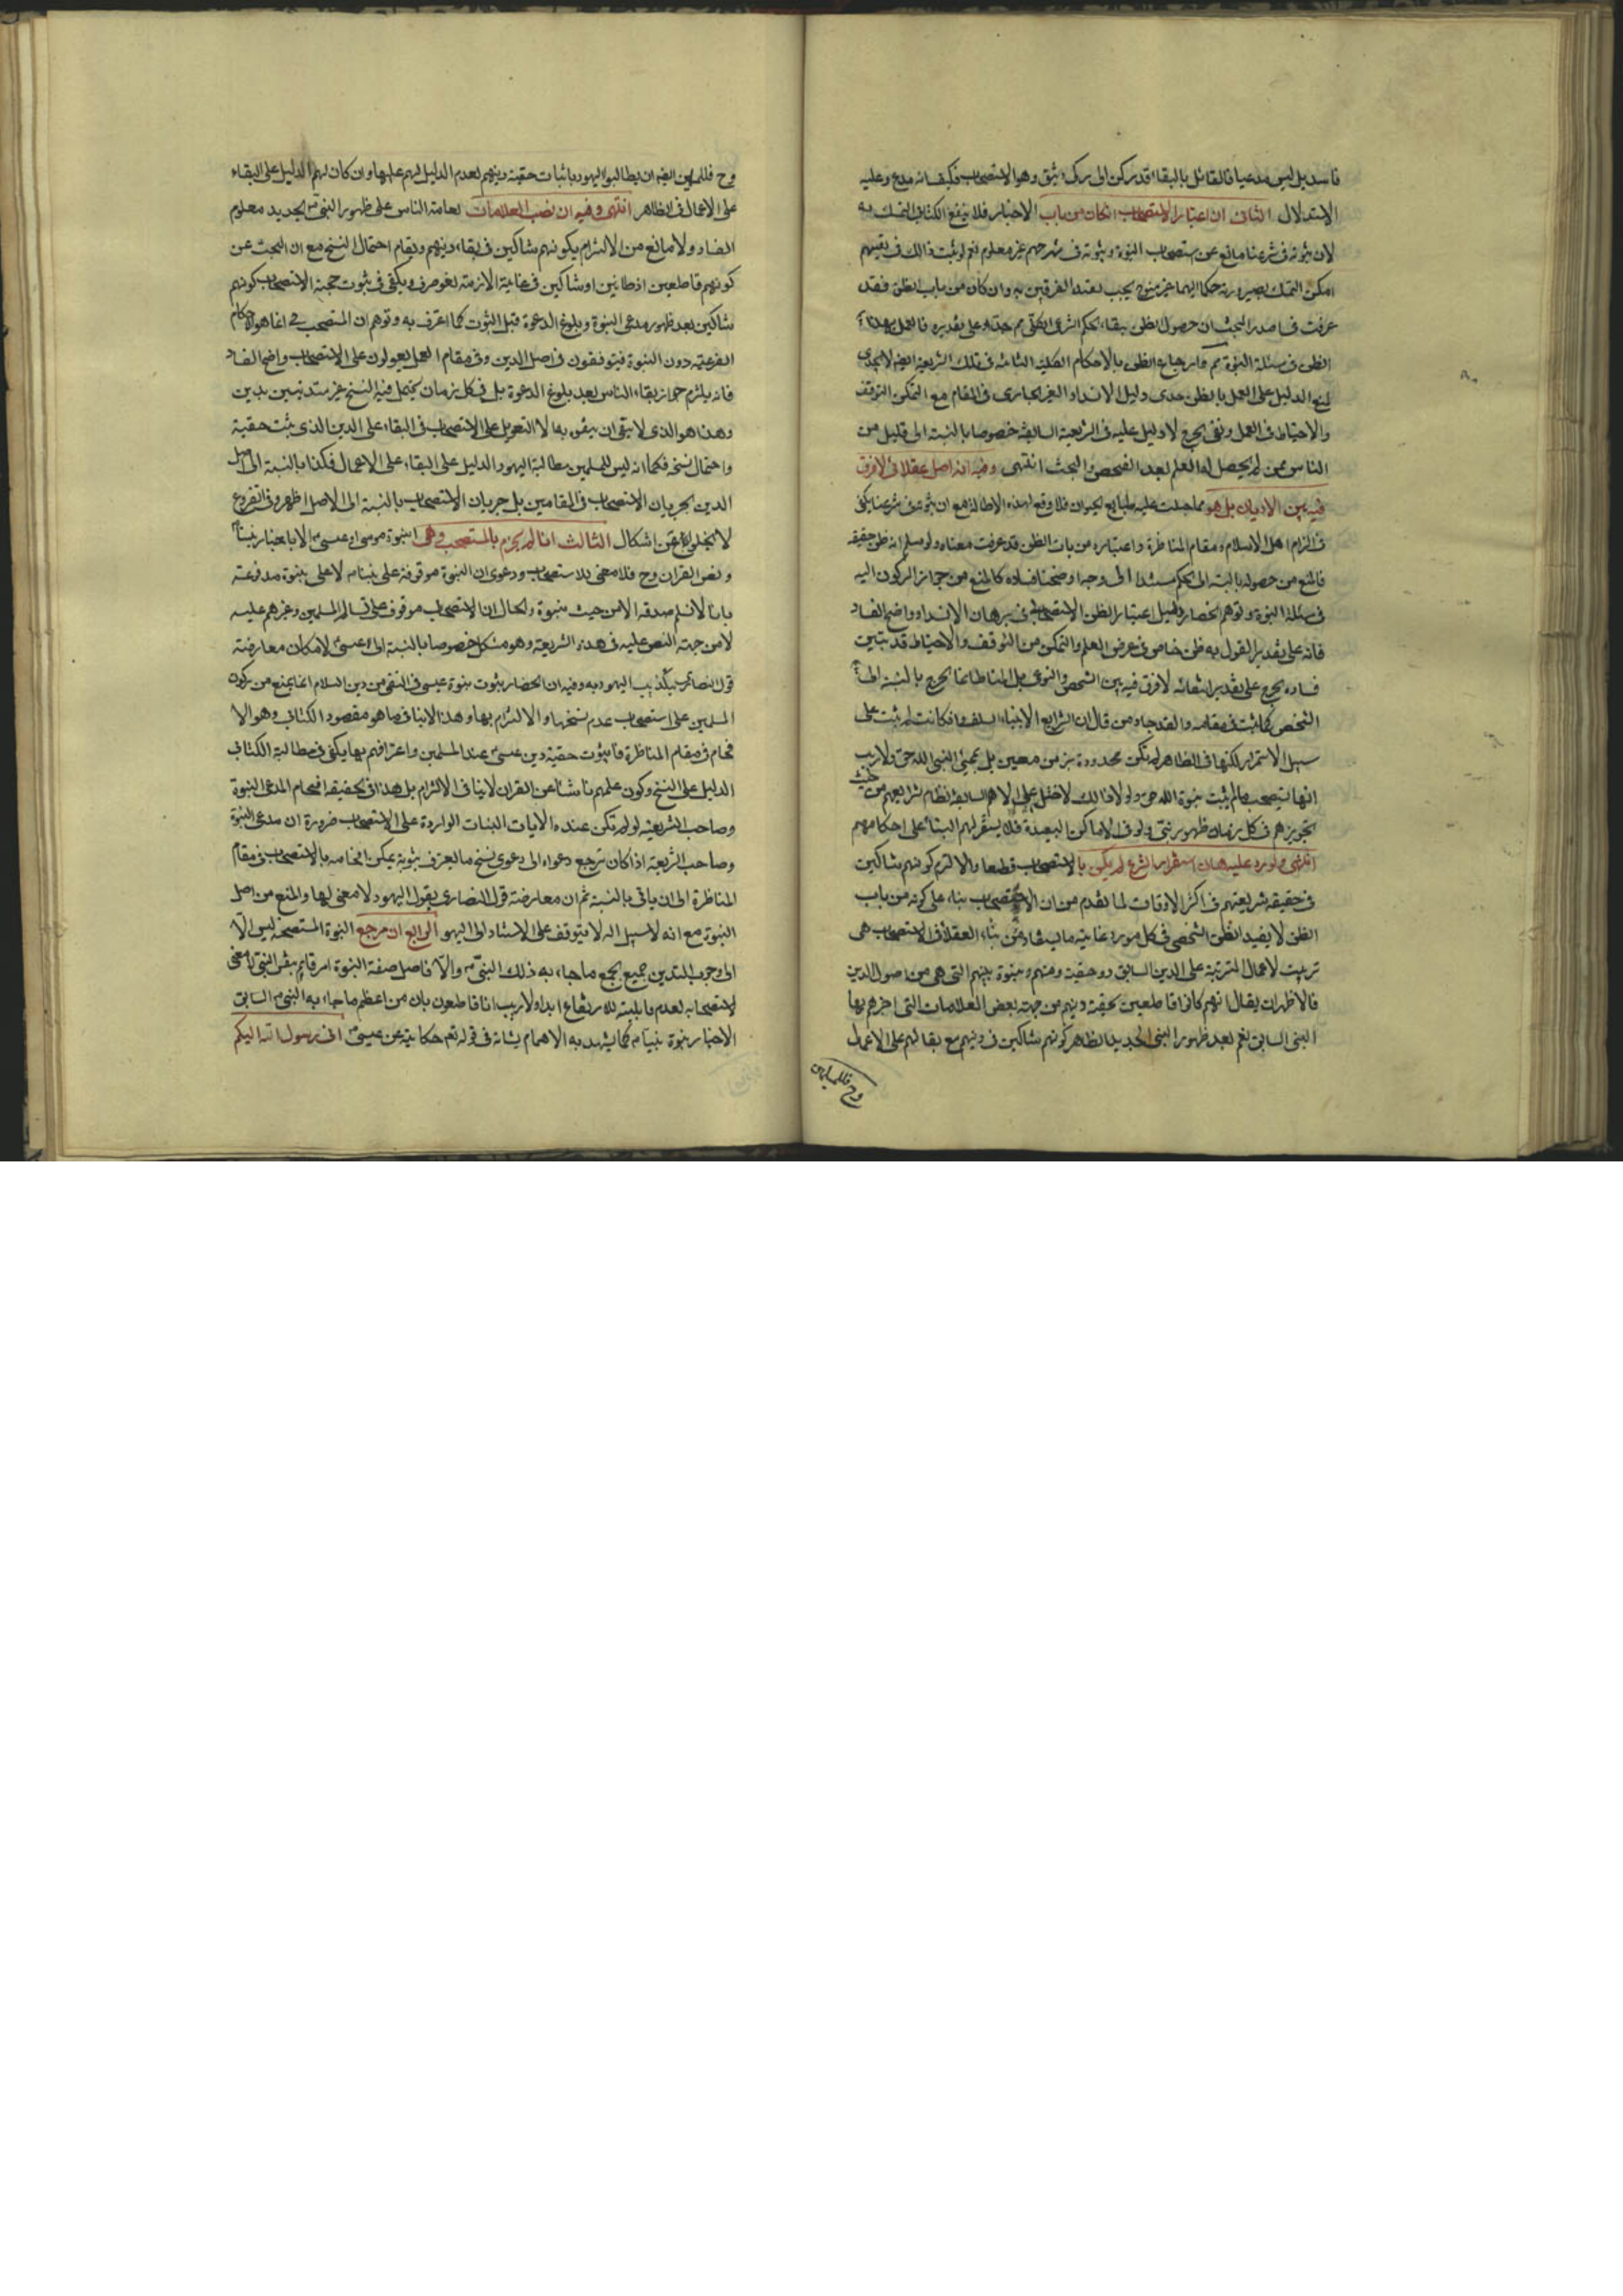 فاسد بل ليس مدعيا فالقائل بالبقاء قد ركن الى ركن وثيق وهو الاستصحاب فكيف انه مدع وعليه
الاستدلال الثانى ان اعتبار الاستصحاب ان كان من باب الاخبار فلا ينفع الكتابى التمسك به
لان ثبوته فى شرعنا مانع عن استصحاب النبوة وثبوته فى شرعهم غير معلوم نعم لو ثبت ذالك فى شرعهم
امكن التمسك به لصيرورته حكما الهيا غير منسوخ يجب تعبد الفريقين به وان كان من باب الظن فقد
عرفت فى صدر المبحث ان حصول الظن ببقاء الحكم الشرعى الكلى مم جدا وعلى تقديره فالعمل بهذا
الظن فى مسئلة النبوة مم وارجاع الظن بالاحكام الكلية الثابتة فى تلك الشريعة ايضه لا يجدى
لمنع الدليل على العمل بالظن عدى دليل الانسداد الغير الجارى فى المقام مع التمكن من التوقف
والاحتياط فى العمل ونفى الحرج لا دليل عليه فى الشريعة السابقة خصوصا بالنسبة الى قليل من
الناس ممن لم يحصل له العلم بعد الفحص والبحث انتهى وفيه انه اصل عقلائى لا فرق
فيه بين الاديان بل هو مما جبلت عليه طبايع الحيوان فلا وقع لهذه الاطالة مع ان ثبوته فى شرعنا يكفى
فى الزام اهل الاسلام فى مقام المناظرة واعتباره من باب الظن قد عرفت معناه ولو سلم انه ظن حقيقة
فالمنع من حصوله بالنسبة الى الحكم مستندا الى وجه اوضحنا فساده كالمنع من جواز الركون اليه
فى مسئلة النبوة وتوهم انحصار دليل اعتبار الظن الاستصحابى فى برهان الانسداد واضح الفساد
فانه على تقدير القول به ظن خاص فى عرض العلم والتمكن من التوقف والاحتياط قد تبين
فساده بحرج على تقدير انتفائه لا فرق فيه بين الشخص والنوعى بل المناط انما الحرج بالنسبة الى
الشخص كما ثبت فى مقامه والعجب من قال ان الشرايع الانبياء السلف وان كانت لم تثبت على
سبيل الاستمرار لكنها فى الظاهر لم تكن محدودة بزمن معين بل بمجىء النبى اللاحق ولا ريب
انها تستصحب ما لم يثبت نبوة اللاحق ولولا ذالك لاختل على الامم السابقة نظام شرايعهم من حيث
تجويزهم فى كل زمان ظهور نبى ولو فى الاماكن البعيدة فلا يستقر لهم البناء على احكامهم
انتهى واورد عليه بان استقرار الشرع لم يكن بالاستصحاب قطعا والا لزم كونهم شاكين
فى حقيقة شريعتهم فى اكثر الاوقات لما تقدم من ان الاستصحاب بناء على كونه من باب
الظن لا يفيد الظن الشخصى فى كل مورد غاية ما يستفاد من بناء العقلاء فى الاستصحاب هى
ترتيب الاعمال المترتبة على الدين السابق دون حقيقة دينهم ونبوة نبيهم التى هى من اصول الدين
فالاظهر ان يقال انهم كانوا قاطعين بحقيقة دينهم من جهة بعض العلامات التى اخبرهم بها
النبى السابق نعم بعد ظهور النبى الجديد الظاهر كونهم شاكين فى دينهم مع بقائهم على الاعمال
وح فللمسلمين
وح فللمسلمين ايضه ان يطالبوا اليهود باثبات حقية دينهم لعدم الدليل لهم عليها وان كان لهم الدليل على البقاء
على الاعمال فى الظاهر انتهى وفيه ان نصب العلامات لعامة الناس على ظهور النبى الجديد معلوم
الفساد ولا مانع من الالتزام بكونهم شاكين فى بقاء دينهم وبقاء احتمال النسخ مع ان البحث عن
كونهم قاطعين او ظانين او شاكين فى غابر الازمنة لغو صرف ويكفى فى ثبوت حجية الاستصحاب كونهم
شاكين بعد ظهور مدعى النبوة وبلوغ الدعوة قبل الثبوت كما اعترف به وتوهم ان المستصحب ح انما هو الاحكام
الفرعية دون النبوة فيتوقفون فى اصل الدين وفى مقام العمل يعولون على الاستصحاب واضح الفساد
فانه يلزم جواز بقاء الناس بعد بلوغ الدعوة بل فى كل زمان يحتمل فيه النسخ غير متدينين بدين
وهذا هو الذى لا ينبغى ان يتفوه به لا التعويل على الاستصحاب فى البقاء على الدين الذى ثبت حقية
واحتمال نسخه فكما انه ليس للمسلمين مطالبة اليهود الدليل على البقاء على الاعمال فكذا بالنسبة الى اصل
الدين لجريان الاستصحاب فى المقامين بل جريان الاستصحاب بالنسبة الى الاصل اظهر وفى الفروع
لا يخلو عن اشكال الثالث انا لم نجزم بالمستصحب وهى نبوة موسى او عيسى الا باخبار نبينا
ونص القران وح فلا معنى للاستصحاب ودعوى ان النبوة موقوفة على نبينا لا على نبوة مدفوعة
بانا لا نسلم صدقه الا من حيث نبوة والحال ان الاستصحاب موقوف على تسالم المسلمين وغيرهم عليه
لا من جهة النص عليه فى هذه الشريعة وهو مشكل خصوصا بالنسبة الى عيسى لامكان معارضة
قول النصارى بتكذيب اليهود به وفيه ان انحصار ثبوت نبوة عيسى فى التلقى من دين السلام انما يمنع من ركون
المسلمين على استصحاب عدم نسخها والالتزام بها وهذا لا ينافى ما هو مقصود الكتابى وهو الا
فحام فى مقام المناظرة فان ثبوت حقية دين عيسى عند المسلمين واعترافهم بها يكفى فى مطالبة الكتابى
الدليل على النسخ وكون علمهم ناشئا عن القران لا ينافى الالتزام بل هذا فى الحقيقة افحام المدعى النبوة
وصاحب الشريعة لو لم تكن عنده الايات البينات الواردة على الاستصحاب ضرورة ان مدعى النبوة
وصاحب الشريعة اذا كان ترجع دعواه الى دعوى نسخ ما يعترف بثبوته يمكن افحامه بالاستصحاب فى مقام
المناظرة الى ان ياتى بالبينة ثم ان معارضة قول النصارى بقول اليهود لا معنى لها والمنع من اصل
النبوة مع انه لا سبيل اليه لا يتوقف على الاستناد الى اليهود الرابع ان مرجع النبوة المستصحبة ليس الا
الى وجوب التدين بجميع ما جاء به ذلك النبى والا فاصل صفة النبوة امر قائم بنفس النبى لا معنى
لاستصحابه لعدم قابليته للارتفاع ابدا ولا ريب انا قاطعون بان من اعظم ما جاء به النبى السابق
الاخبار بنبوة نبينا كما يشهد به الاهتمام بشانه فى قوله تعم حكاية عن عيسى انى رسول الله اليكم